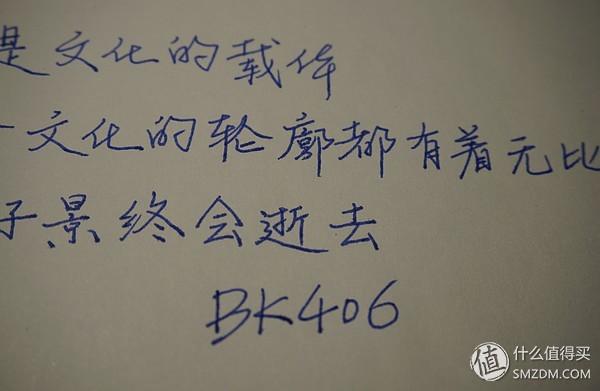 是文化的载体
文化的轮廓都有着无比
景终会逝去
BK406
值 什么值得买
SMZDM.COM